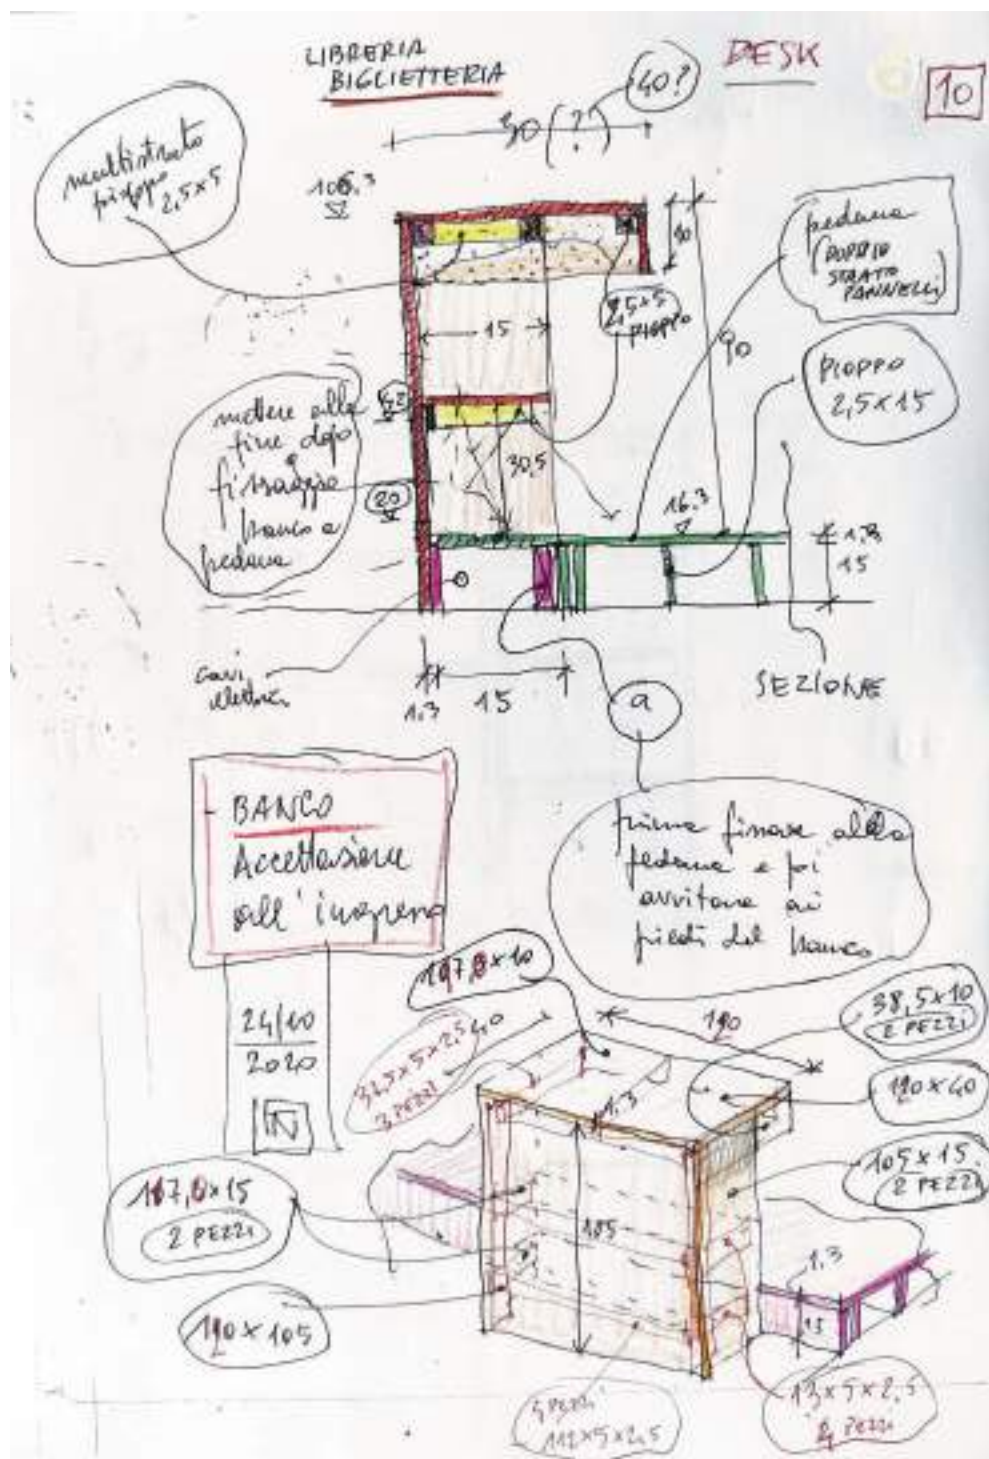 LIBRERIA
BIGLIETTERIA
DESK
10
40?
30 (?)
multistrato
pioppo
2,5x5
106.3
10
pedana
(DOPPIO
STRATO
PANNELLI)
15
2,5x5
PIOPPO
90
PIOPPO
2,5x15
mettere alla
fine dopo
fissaggio
banco a
pedana
42
20
30,5
16.3
1.3
15
cavi
elettrici
1.3
15
a
SEZIONE
BANCO
Accettazione
all'ingresso
24/10
2020
prima fissare alla
pedana e poi
avvitare ai
piedi del banco
38,5x10
2 PEZZI
40
3 PEZZI
1.3
105x15
2 PEZZI
2 PEZZI
105
1,3
15
13x5x2,5
4 PEZZI
112x5x2,5
PEZZI